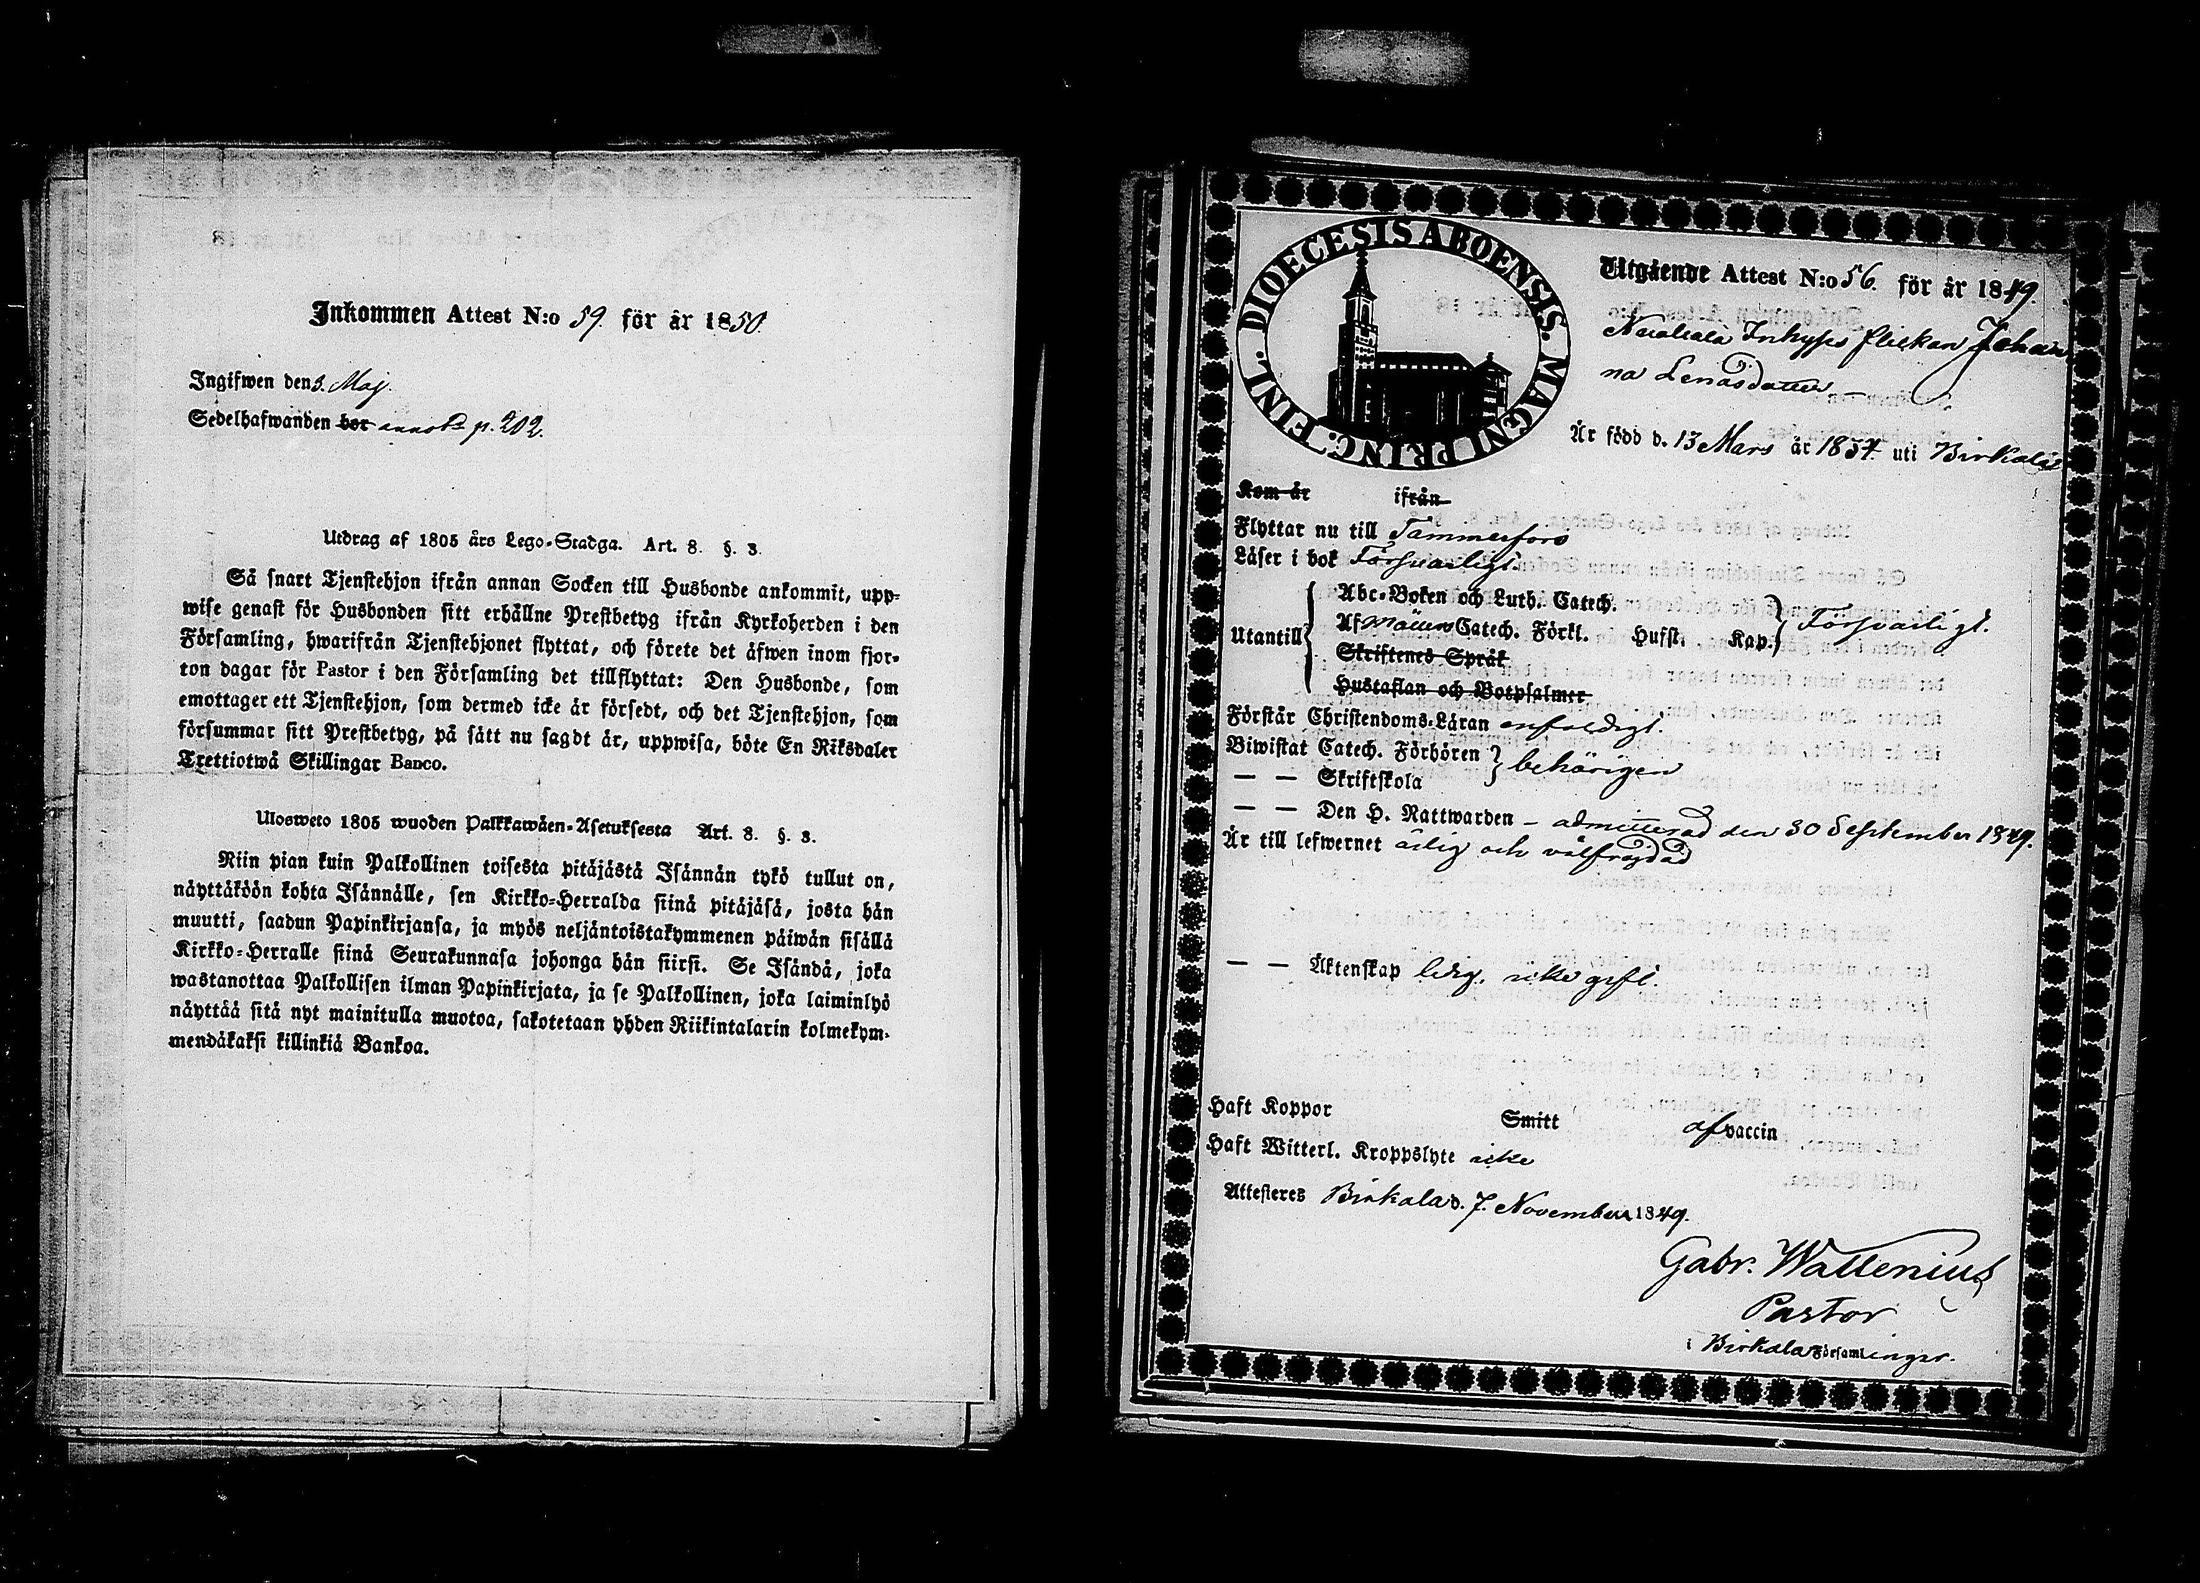 Inkommen Attest N:o 59. för år 1850.
Ingifwen den 3. Maj.
Sedelhafwanden bor annot. p. 202.
Utdrag af 1805 års Lego-Stadga. Art. 8. §. 3.
Så snart Tjenstehjon ifrån annan Socken till Husbonde ankommit, upp-
wise genast för Husbonden sitt erhållne Prestbetyg ifrån Kyrkoherden i den
Församling, hwarifrån Tjenstehjonet flyttat, och förete det äfwen inom fjor-
ton dagar för Pastor i den Församling det tillflyttat: Den Husbonde, som
emottager ett Tjenstehjon, som dermed icke är försedt, och det Tjenstehjon, som
försummar sitt Prestbetyg, på sätt nu sagdt är, uppwisa, böte En Riksdaler
Trettiotwå Skillingar Banco.
Ulosweto 1805 wuoden Palkkawäen-Asetuksesta Art. 8. §. 3.
Niin pian kuin Palkollinen toisesta pitäjästä Isännän tykö tullut on,
näyttäköön kohta Isännälle, sen Kirkko-Herralda siinä pitäjäsä, josta hän
muutti, saadun Papinkirjansa, ja myös neljäntoistakymmenen päiwän sisällä
Kirkko-Herralle siinä Seurakunnasa johonga hän siirsi. Se Isändä, joka
wastanottaa Palkollisen ilman Papinkirjata, ja se Palkollinen, joka laiminlyö
näyttää sitä nyt mainitulla muotoa, sakotetaan yhden Riikintalarin kolmekym-
mendäkaksi killinkiä Bankoa.
DIOECESIS ABOENSIS. MAGNI PRINC. FINL.
Utgående Attest N:o 56. för år 1849.
Inhyses flickan Johan
na Lenasdotter
Är född d. 13 Mars år 1834. uti Birkala
Kom år ifrån
Flyttar nu till Tammerfors
Läser i bok Försvarligt.
Abc-Boken och Luth. Catech.
Utantill Af Möllers Catech. Förkl. Hufst. Kap. Försvarligt.
Skriftenes Språk
Hustaflan och Botpsalmer
Förstår Christendoms-Läran enfaldigt.
Biwistat Catech. Förhören
— — Skriftskola behörigen
— — Den H. Nattwarden – admitterad den 30 September 1849.
Är till lefwernet ärlig och välfrejdad
— — Äktenskap ledig, icke gift.
Haft Koppor Smitt af vaccin
Haft Witterl. Kroppslyte icke
Attesteres Birkala d. 7. November 1849.
Gabr. Wallenius
Pastor
i Birkala Församlingar.